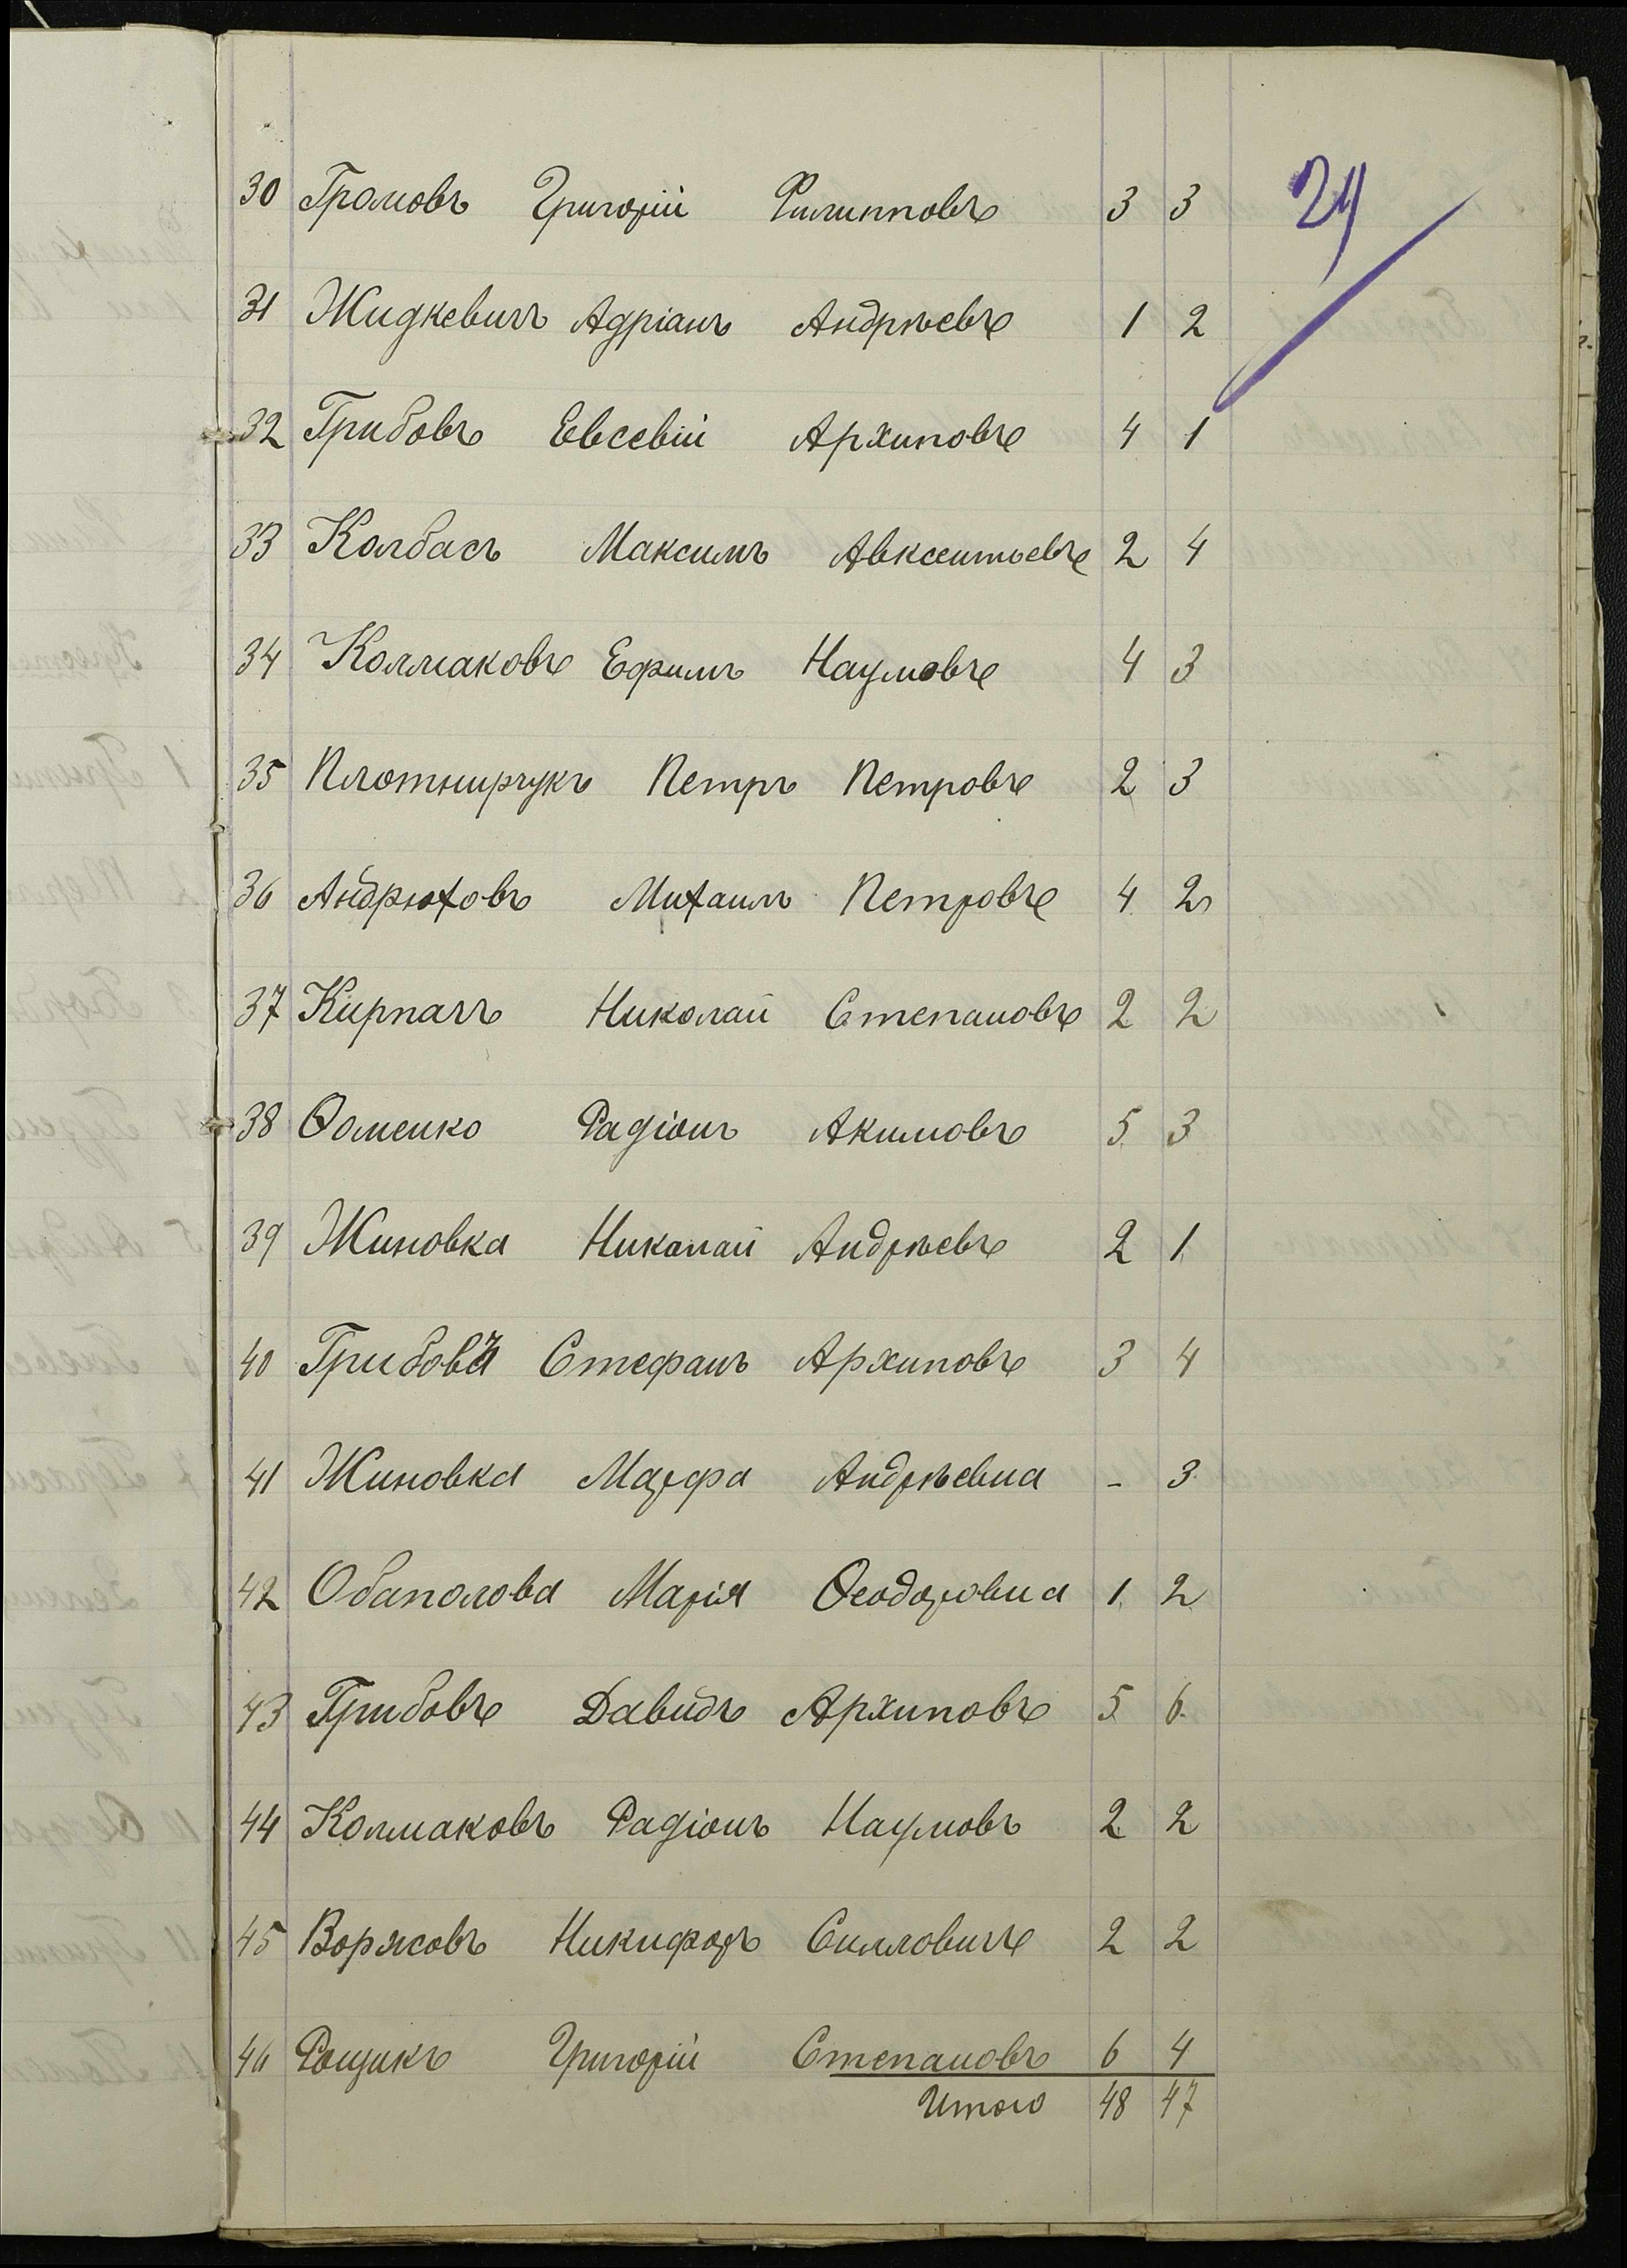 24
30 Громовъ Григорій Филипповъ 3 3
31 Жидкевичъ Адріанъ Андрѣевъ 1 2
32 Грибовъ Евсевій Архиповъ 4 1
33 Колбасъ Максимъ Авксентьевъ 2 4
34 Колмаковъ Ефимъ Наумовъ 4 3
35 Плотнирчукъ Петръ Петровъ 2 3
36 Андрюховъ Михаилъ Петровъ 4 2
37 Кирпачъ Николай Степановъ 2 2
38 Ѳоменко Радіонъ Акимовъ 5 3
39 Жиновка Николай Андрѣевъ 2 1
40 Грибовъ Стефанъ Архиповъ 3 4
41 Жиновка Марфа Андрѣевна - 3
42 Обаполова Марія Ѳеодоровна 1 2
43 Грибовъ Давидъ Архиповъ 5 6
44 Колмаковъ Радіонъ Наумовъ 2 2
45 Воржовъ Никифоръ Силловичъ 2 2
46 Рощикъ Григорій Степановъ 6 4
Итого 48 47